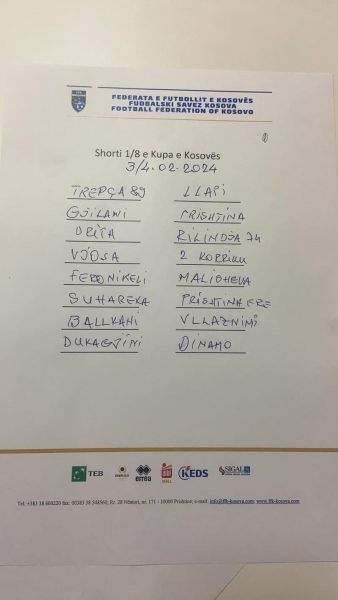 FEDERATA E FUTBOLLIT E KOSOVËS
FUDBALSKI SAVEZ KOSOVA
FOOTBALL FEDERATION OF KOSOVO
Shorti 1/8 e Kupa e Kosovës
3/4.02.2024
TREPÇA 89 LLAPI
GJILANI PRISHTINA
DRITA RILINDJA 74
VJOSA 2 KORRIKU
FERONIKELI MALISHEVA
SUHAREKA PRISHTINA E RE
BALLKANI VLLAZNIMI
DUKAGJINI DINAMO
TEB errea KEDS SIGAL
Tel: +383 38 600220 fax: 00383 38 548560; Rr. 28 Nëntori, nr. 171 - 10000 Prishtinë; e-mail: info@ffk-kosova.com; www.ffk-kosova.com